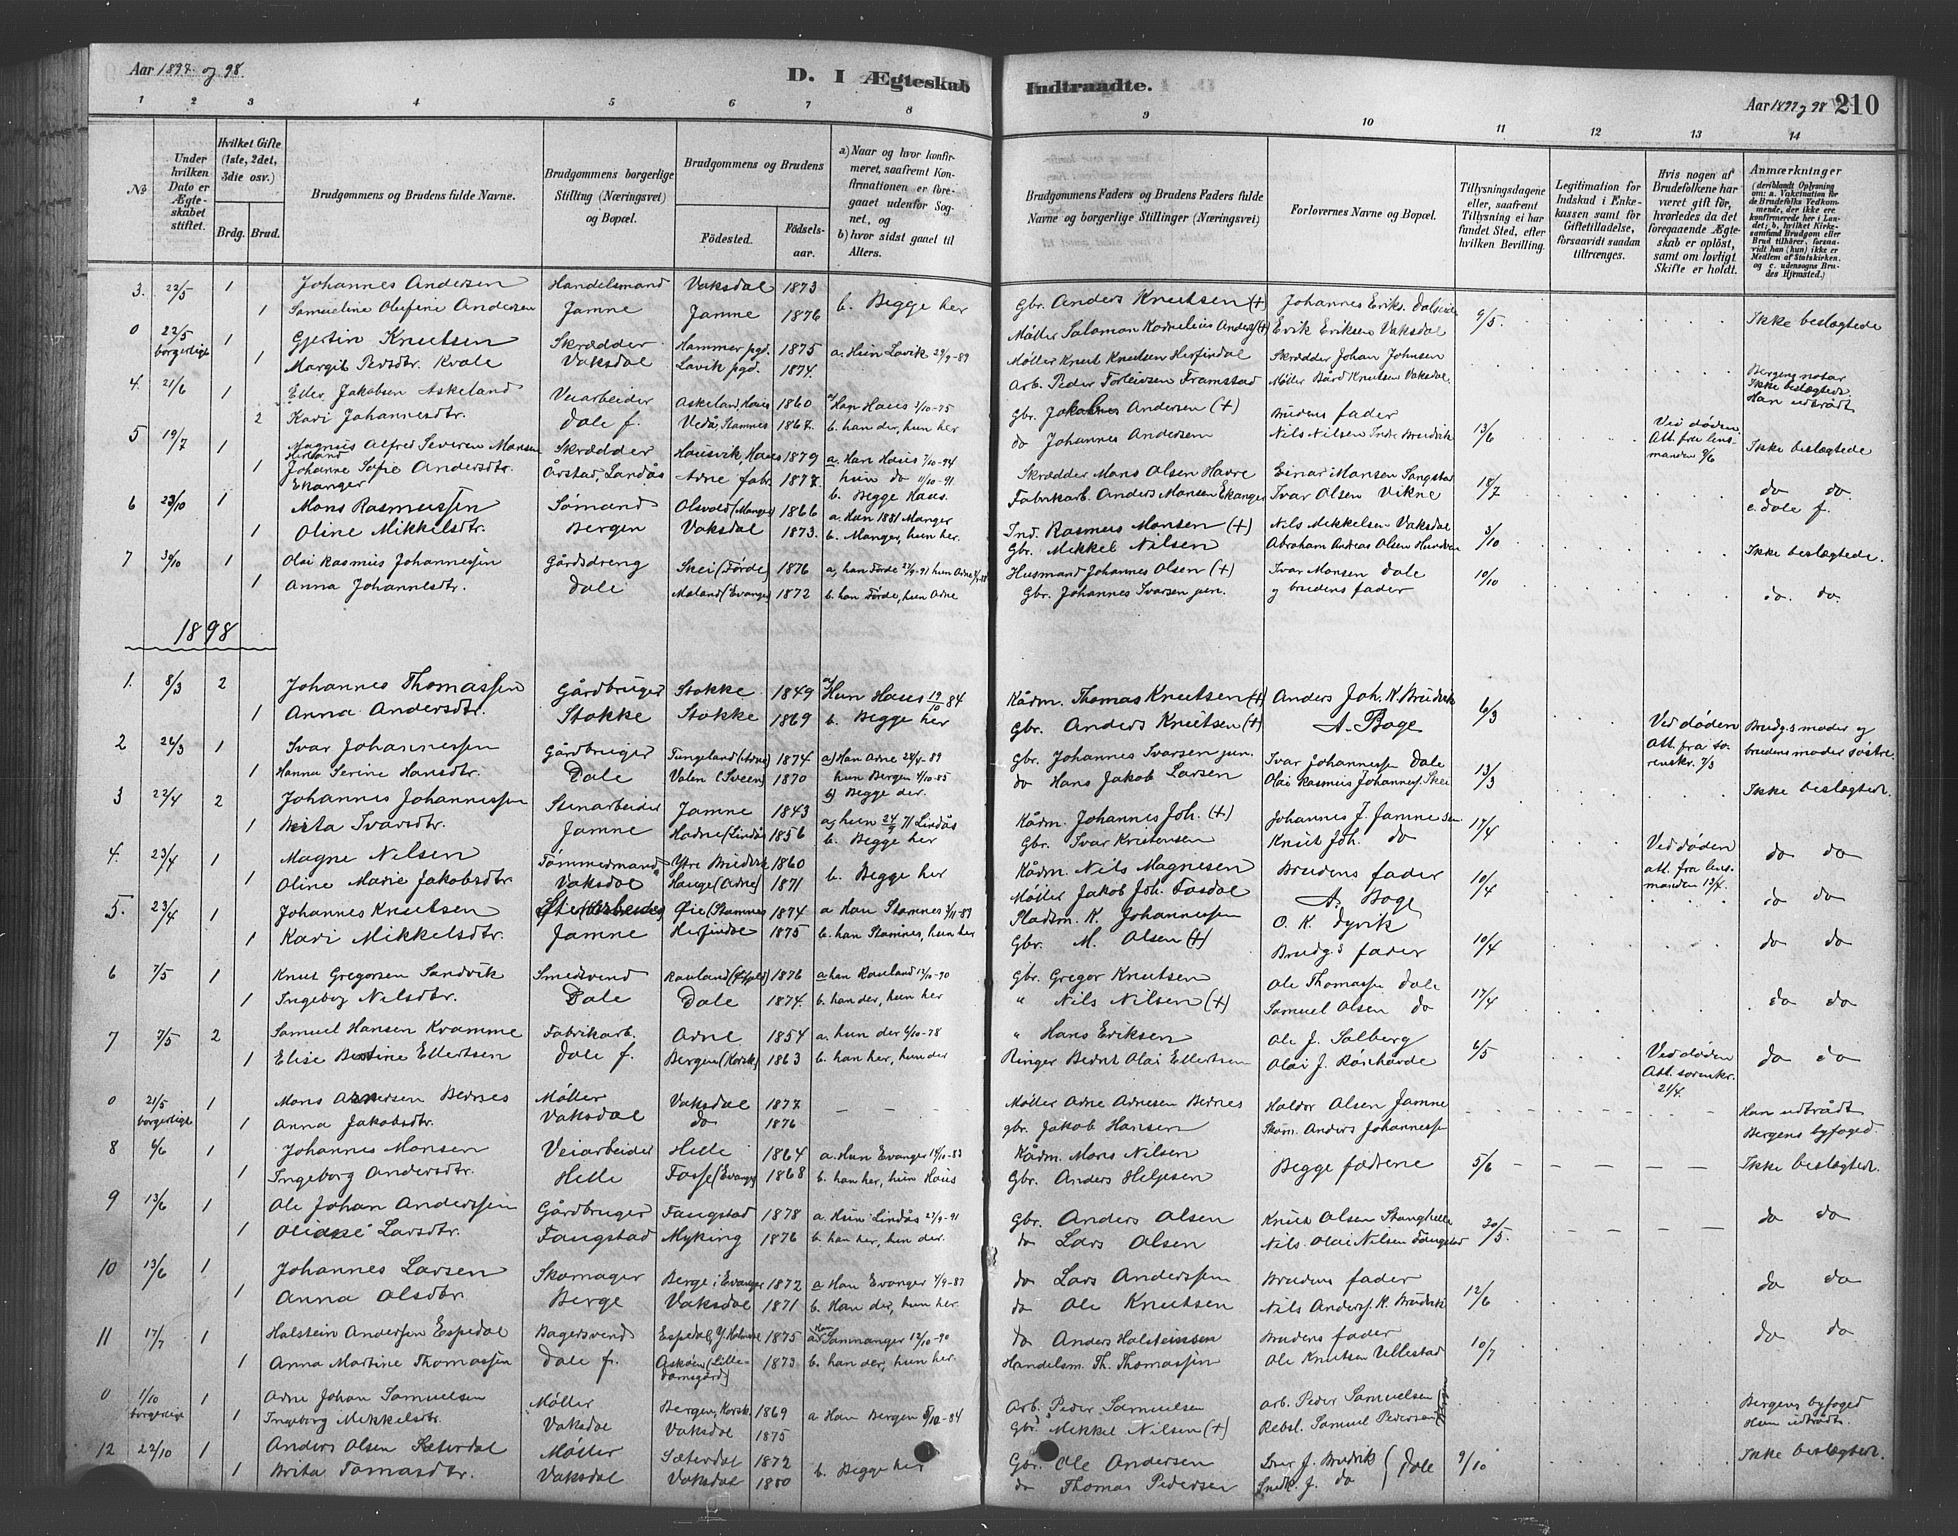 Aar 1897 og 98.
D. I Ægteskab
Indtraadte.
Aar 1897 og 98
210
1 2 3 4 5 6 7 8 9 10 11 12 13 14
No
Under hvilken Dato er Ægteskabet stiftet.
Hvilket Gifte (1ste, 2det, 3die osv.)
Brdg. Brud.
Brudgommens og Brudens fulde Navne.
Brudgommens borgerlige Stilling (Næringsvei) og Bopæl.
Brudgommens og Brudens
Fødested.
Fødselsaar.
a) Naar og hvor konfirmeret, saafremt Konfirmationen er foregaaet udenfor Sognet, og
b) hvor sidst gaaet til Alters.
Brudgommens Faders og Brudens Faders fulde Navne og borgerlige Stillinger (Næringsvei)
Forlovernes Navne og Bopæl.
Tillysningsdagene eller, saafremt Tillysning ei har fundet Sted, efter hvilken Bevilling.
Legitimation for Indskud i Enkekassen samt for Giftetilladelse, forsaavidt saadan tiltrænges.
Hvis nogen af Brudefolkene har været gift før, hvorledes da det foregaaende Ægteskab er opløst, samt om lovligt Skifte er holdt.
Anmærkninger
(deriblandt Oplysning om: a. Vakcination for de Brudefolks Vedkommende, der ikke ere konfirmerede her i Landet; b. hvilket Kirkesamfund Brudgom eller Brud tilhører, forsaavidt han (hun) ikke er Medlem af Statskirken, og c. udensogns Brudes Hjemsted.)
3. 22/5 1 Johannes Andersen Handelsmand Vaksdal 1873 b. Begge her Gbr. Anders Knutsen (+) Johannes Eriks. Dalseid 9/5 Ikke beslægtede
1 Samueline Olufine Andersen Jamne Jamne 1876 Møller Salamon Kornelius Anders. (+) Erik Eriksen Vaksdal
0 22/5 borgerligt 1 Gjertin Knutsen Skrædder Hammer pgd. 1875 a. Hun Lavik 29/9-89 Møller Knut Knutsen Herfindal Skrædder Johan Johnsen Bergens notar
1 Margit Persdtr. Kvale Vaksdal Lavik pgd. 1874. Arb. Peder Torleivsen Framstad Møller Bård Knutsen Vaksdal. Ikke beslægtede Han udtrådt
4. 21/6 1 Eller Jakobsen Askeland Veiarbeider Askeland, Haus 1860 a Han Haus 3/10-75 Gbr. Jakob Andersen (+) Brudens fader 13/6 Ved døden. Att. fra lensmanden 9/6 Ikke beslægtede
2 Kari Johannesdtr. Dale f. Vedå, Stamnes 1867. b. han der, hun her do Johannes Andersen Nils Nilsen Indre Brudvik
5 19/7 1 Magnus Alfred Severin Monsen Skrædder Hausvik, Haus 1879 a. Han Haus 7/10-94 Skrædder Mons Olsen Havre Einar Monsen Sangstad 18/7 do do
1 Johanne Sofie Andersdtr. Ekanger Årstad, Landås Arne fabr. 1877. hun do 11/10-91 b. Begge Haus. Fabrikarb. Anders Monsen Ekanger Ivar Olsen Vikne c. Dale f.
6 23/10 1 Mons Rasmussen Sømand Olsvold (Manger) 1866 a. Han 1881 Manger Ind. Rasmus Monsen (+) Nils Mikkelsen Vaksdal 3/10 Ikke beslægtede.
1 Oline Mikkelsdtr. Bergen Vaksdal 1873. b. Manger, hun her. Gbr. Mikkel Nilsen Abraham Andreas Olsen
7 30/10 1 Olai Rasmus Johannessen Gårdsdreng Skei (Førde) 1876 a, han Førde 27/9-91 hun Arne Husmand Johannes Olsen (+) Ivar Monsen Dale 10/10 do. do.
1 Anna Johannesdtr. Dale (Evanger) 1872 b. han Førde, hun Arne Gbr. Johannes Ivarsen jun. og brudens fader
1898
1. 8/3 2 Johannes Thomassen Gårdbruger Stokke 1849 a) Hun Haus 19/10 84 Kådm. Thomas Knutsen (+) Anders Joh. N. Brudvik 6/3 Ved døden Att. fra sorenskr. 7/3 Brudg.s moder og brudens moder søstre
1 Anna Andersdtr. Stokke Stokke 1869 b. Begge her Gbr. Anders Knutsen (+) A. Boge
2 26/3 1 Ivar Johannessen Gårdbruger Fungeland (Arne) 1874 a) Han Arne 28/4-89 Gbr. Johannes Ivarsen jun. Ivar Johannessen Dale 13/3 Ikke beslægtede.
1 Hanna Serine Hansdtr. Dale Valen (Sveen) 1870 hun Bergen 4/10-85 b) Begge der. do Hans Jakob Larsen Olai Rasmus Johanness. Skei
3 22/4 2 Johannes Johannessen Stenarbeider Jamne 1843 a) hun 24/9 71 Lindås Kådm. Johannes Joh. (+) Johannes J. Jamne sen 17/4 Ved døden att. fra lensmanden 13/4. do do
1 Brita Ivarsdtr. Jamne Hodne (Lindås) 1856 b. Begge her Gbr. Ivar Kristensen Knut Joh. do
4. 23/4 1 Magne Nilsen Tømmermand Ytre Brudvik 1860 b. Begge her Kådm. Nils Magnesen Brudens fader 10/4 do do
1 Oline Marie Jakobsdtr. Vaksdal Hauge (Arne) 1871 Møller Jakob Joh. Fosdal A. Boge
5. 23/4 1 Johannes Knutsen Øie (Stamnes) 1874 a Han Stamnes 3/11-89 Pladsm. K. Johannessen O. K. Dyvik 10/4 do do
1 Kari Mikkelsdtr. Jamne Herfindal 1875 b. han Stamnes, hun her Gbr. M. Olsen (+) Brudg.s fader
6 7/5 1 Knut Gregorsen Sandvik Smedsvend Rauland 1876 a han Rauland 12/10-90 Gbr. Gregor Knutsen Ole Thomassen Dale 17/4 do do
1 Ingeborg Nilsdtr. Dale Dale 1874. b. han der, hun her " Nils Nilsen (+) Samuel Olsen do
7 7/5 2 Samuel Hansen Kvamme Fabrikarb. Arne 1854 a. hun der 6/10-78 " Hans Eriksen Ole J. Solberg 6/5 Ved døden Att. sorenskr. 21/4. do do
1 Elise Bertine Ellertsen Dale f. Bergen (Korsk.) 1863 b. han her, hun der Ringer Bernt Olai Ellertsen Olai J. Rönhovde
0 21/5 borgerligt 1 Mons Arnesen Bernes Møller Vaksdal 1877 – – – Møller Arne Arnesen Bernes Haldor Olsen Jamne Han udtrådt
1 Anna Jakobsdtr. Vaksdal do 1876 gbr. Jakob Hansen Skom. Anders Johannessen Bergens byfoged.
8 6/6 1 Johannes Monsen Veiarbeider Helle 1864 a. Hun Evanger 14/10-83 Kådm. Mons Nilsen Begge fædrene 5/6 Ikke beslægtede.
1 Ingeborg Andersdtr. Helle Fosse (Evanger) 1868 b. han her, hun Haus Gbr. Anders Helgesen
9 13/6 1 Ole Johan Anderssen Gårdbruger Fangstad 1878 a. Hun Lindås 27/9-91 Gbr. Anders Olsen Knut Olsen Stanghelle 30/5. do do
1 Oliane Larsdtr. Fangstad Myking 1876 b. han her, hun der. do Lars Olsen Nils Olai Nilsen Fangstad
10 13/6 1 Johannes Larsen Skomager Berge i Evanger 1872 a Han Evanger 7/9-87 do Lars Anderssen Brudens fader 12/6 do do
1 Anna Olsdtr. Berge Vaksdal 1871 b. Han der, hun her. do Ole Knutsen Nils Anders. N. Brudvik
11 17/7 1 Holstein Andersen Espedal Bagersvend Espedal, Y. Holmedal 1875 a) Han Samnanger 12/10-90 do Anders Holsteinssen Brudens fader 10/7 do do
1 Anna Martine Thomassen Dale f. Askøen (Lille Damsgård) 1873 b. han der, hun her. Handelsm. Th. Thomassen Ole Knutsen Vellestad
0 1/10 borgerligt 1 Arne Johan Samuelsen Møller Bergen, Korsk. 1869 a Han Bergen 5/10-84 Arb. Peder Samuelsen arb. Peder Samuelsen Bergens byfoged
1 Ingeborg Mikkelsdtr. Vaksdal Vaksdal 1875 Gbr. Mikkel Nilsen (+) Rebsl. Samuel Pedersen Hun udtrådt.
12 22/10 1 Anders Olsen Sæterdal Møller Sæterdal 1872 b. Begge her Gbr. Ole Andersen J. Brudvik Dale 9/10 Ikke beslægtede.
1 Brita Tomasdtr. Vaksdal Vaksdal 1880 do Thomas Pedersen Snedk. J. do